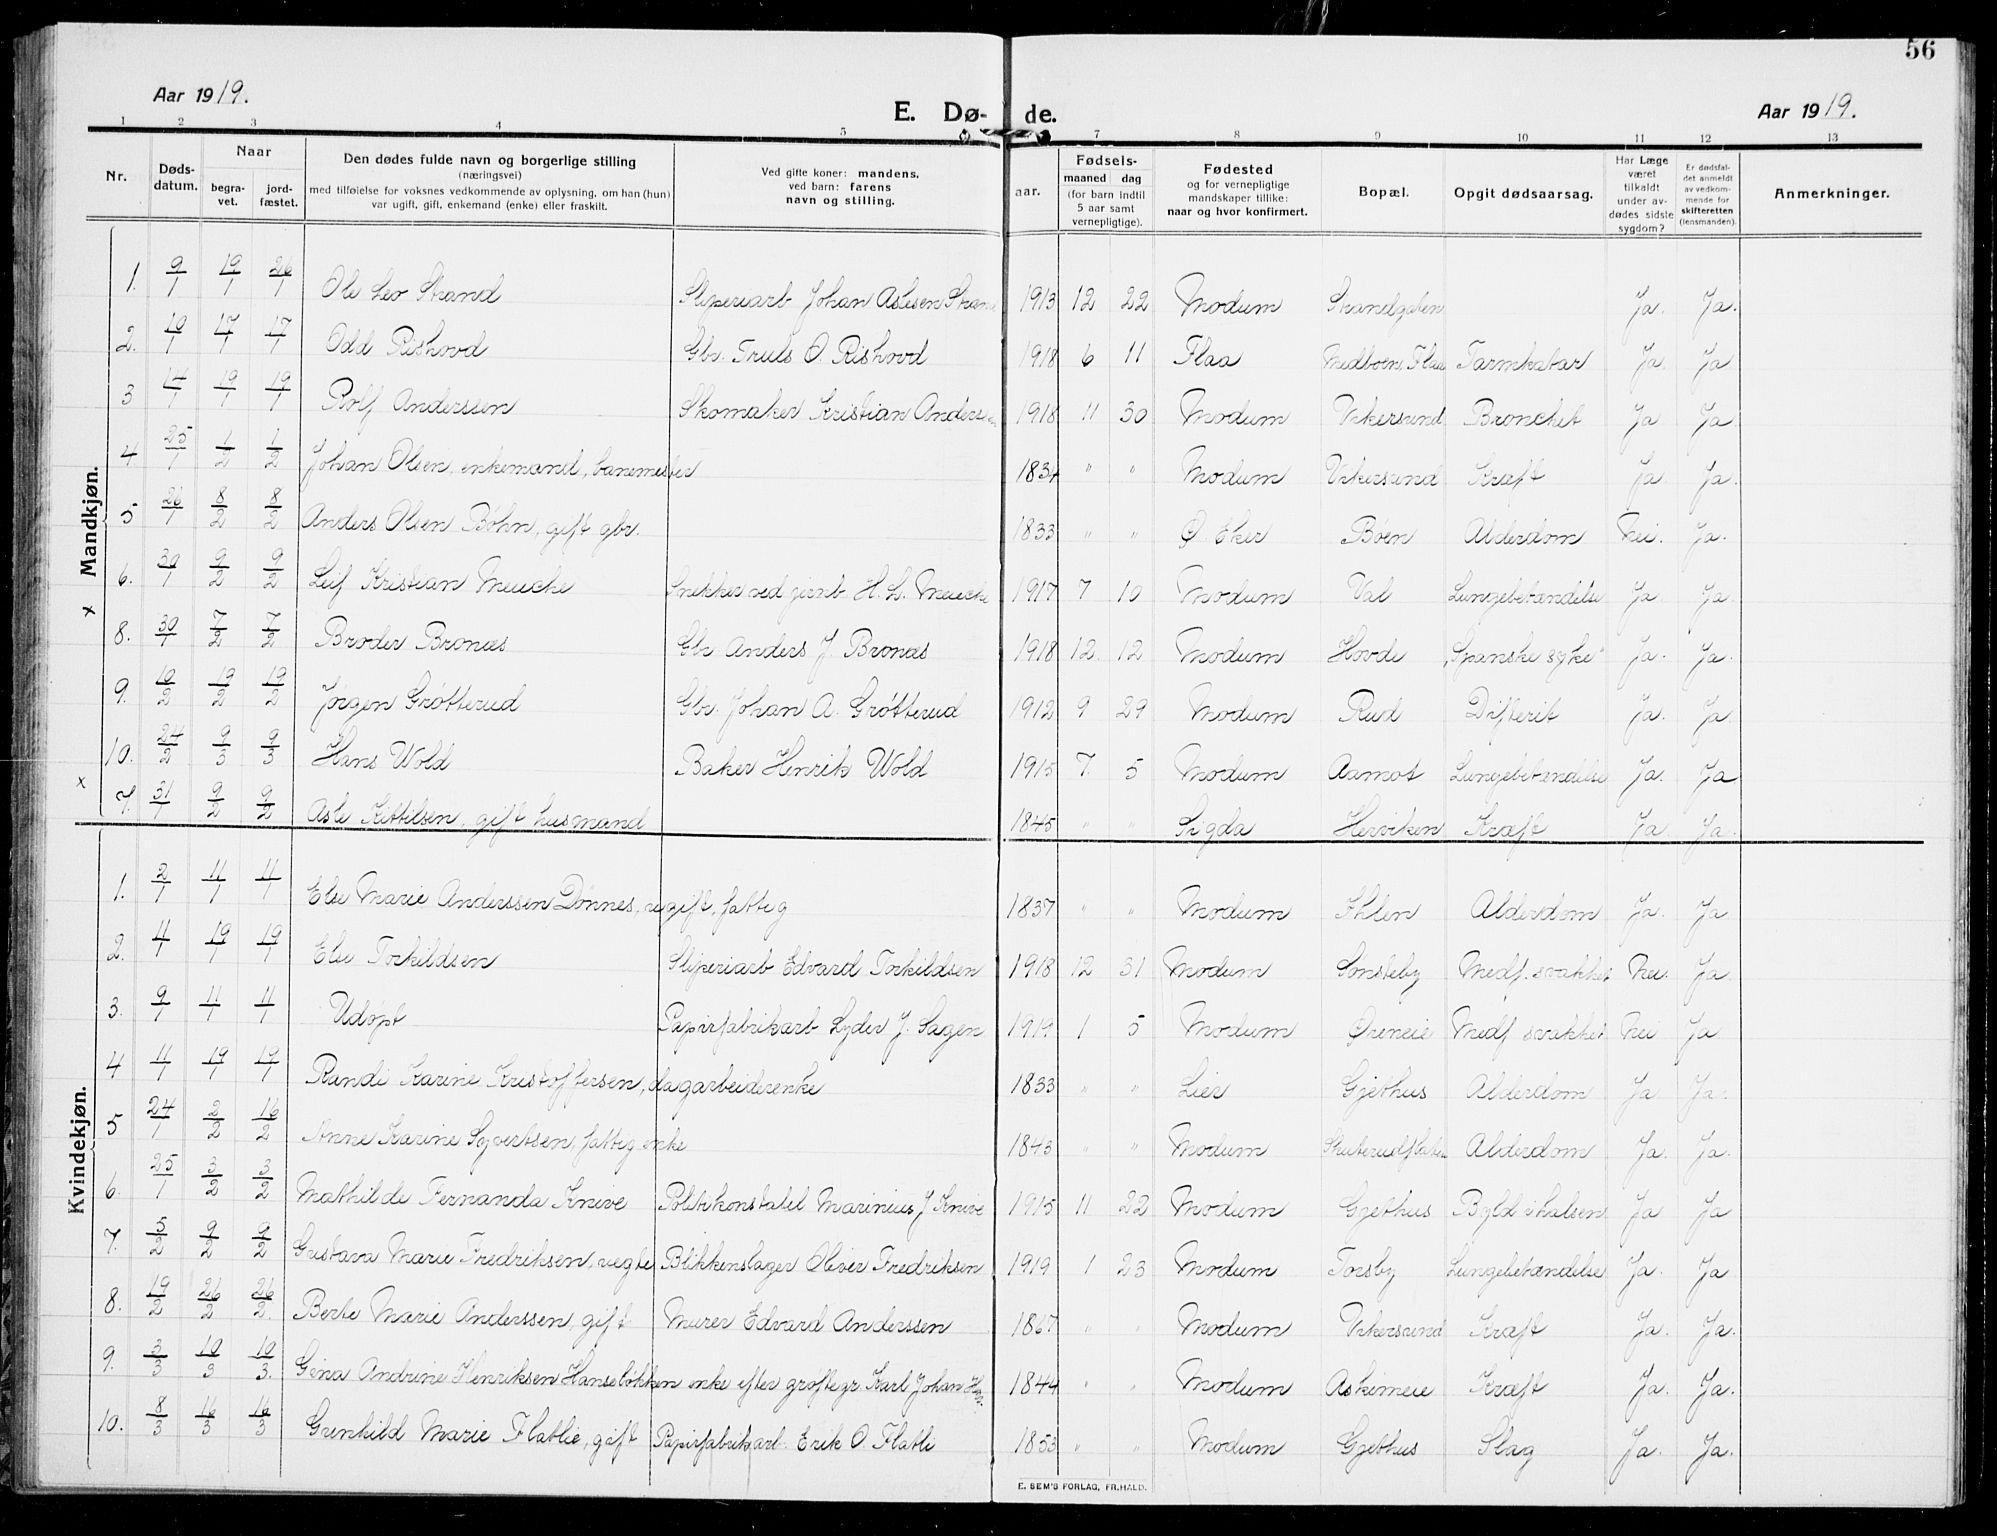 56
Aar 1919.
E. Dø- de.
Aar 1919.
1 2 3 4 5 7 8 9 10 11 12 13
Nr. Dødsdatum. Naar begravet. jordfæstet. Den dødes fulde navn og borgerlige stilling (næringsvei) med tilføielse for voksnes vedkommende av oplysning, om han (hun) var ugift, gift, enkemand (enke) eller fraskilt. Ved gifte koner: mandens. ved barn: farens navn og stilling. aar. Fødsels- maaned dag (for barn indtil 5 aar samt vernepligtige). Fødested og for vernepligtige mandskaper tillike: naar og hvor konfirmert. Bopæl. Opgit dødsaarsag. Har Læge været tilkaldt under avdødes sidste sygdom? Er dødsfaldet anmeldt av vedkommende for skifteretten (lensmanden). Anmerkninger.
Mandkjøn.
1. 9/1 19/1 26/1 Ole Leo Strand Sliperiarb Johan Aslesen Strand 1913 12 22 Modum Strandgaten Ja. Ja.
2. 10/1 17/1 17/1 Odd Rishovd Gbr. Truls O. Rishovd 1918 6 11 Flaa Medboen, Flaa Tarmkatar Ja. Ja
3 14/1 19/1 19/1 Rolf Anderssen Skomaker Kristian Anderssen 1918 11 30 Modum Vikersund Bronchet Ja Ja
4 25/1 1/2 1/2 Johan Olsen, enkemand, banemester 1834 " " Modum Vikersund Kræft Ja Ja.
5 26/1 8/2 8/2 Anders Olsen Bøhn, gift gbr. 1833 " " Ø. Eker Bøen Alderdom Nei. Ja.
x 6. 30/1 9/2 9/2 Leif Kristian Meucke Snekker ved jernb H. L. Meucke 1917 7 10 Modum Val Lungebetændelse Ja. Ja.
8. 30/1 7/2 7/2 Broder Bronæs Gbr Anders J. Bronæs 1918 12. 12 Modum Hovde "Spanske syke" Ja. Ja.
9. 10/2 19/2 19/2 Jørgen Grøtterud Gbr. Johan A. Grøtterud 1912 9 29 Modum Rud Difterit Ja. Ja.
10. 24/2 9/3 9/3 Hans Wold Baker Henrik Wold 1915 7. 5 Modum Aamot Lungebetændelse Ja. Ja
x 7. 31/1 9/2 9/2 Asle Kittilsen, gift husmand 1845 " " Sigda Herviken Kræft Ja. Ja.
Kvindekjøn.
1. 2/1 11/1 11/1 Else Marie Anderssen Dønnes, ugift, fattig 1837 " " Modum Ihlen Alderdom Ja. Ja
2. 4/1 19/1 19/1 Else Torkildsen Sliperiarb Edvard Torkildsen 1918 12 31 Modum Sønsteby Medf. svakhet Nei. Ja.
3. 9/1 11/1 11/1 Udøpt Papirfabrikarb Lyder J. Sagen 1919 1 5 Modum Øreneie Medf svakhet Nei Ja
4 11/1 19/1 19/1 Randi Karine Kristoffersen, dagarbeiderenke 1833 " " Lier Gjethus Alderdom Ja Ja.
5 24/1 2/2 16/2 Anne Karine Syvertsen, fattig enke 1843 " " Modum Skuterudflaten Alderdom Ja. Ja.
6. 25/1 3/2 3/2 Mathilde Fernanda Knive Politikonstabel Marinius J Knive 1915 11 22 Modum Gjethus Byld i halsen Ja Ja
7. 5/2 9/2 9/2 Gustava Marie Fredriksen, uegte Blikkenslager Oliver Fredriksen 1919 1 23 Modum Torsby Lungebetændelse Ja. Ja
8. 19/2 26/2 26/2 Berte Marie Anderssen, gift Murer Edvard Anderssen 1867 " " Modum Vikersund Kræft Ja. Ja.
9. 3/3 10/3 10/3. Gina Andrine Henriksen Hanseløkken enke efter grøftegr. Karl Johan H. 1844 " " Modum Askimeie Kræft Ja. Ja.
10. 8/3 16/3 16/3 Gunhild Marie Flatlie, gift Papirfabrikarb. Erik O. Flatli 1853 " " Modum Gjethus Slag Ja. Ja.
E. SEM'S FORLAG, FR.HALD.